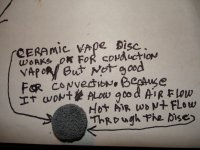 CERAMIC VAPE DISC.
WORKS OK FOR CONDUCTION
VAPOR/ BUT NOT GOOD
FOR CONVECTION. BECAUSE
IT WONT ALOW GOOD AIR FLOW
HOT AIR WONT FLOW
THROUGH THE DISC